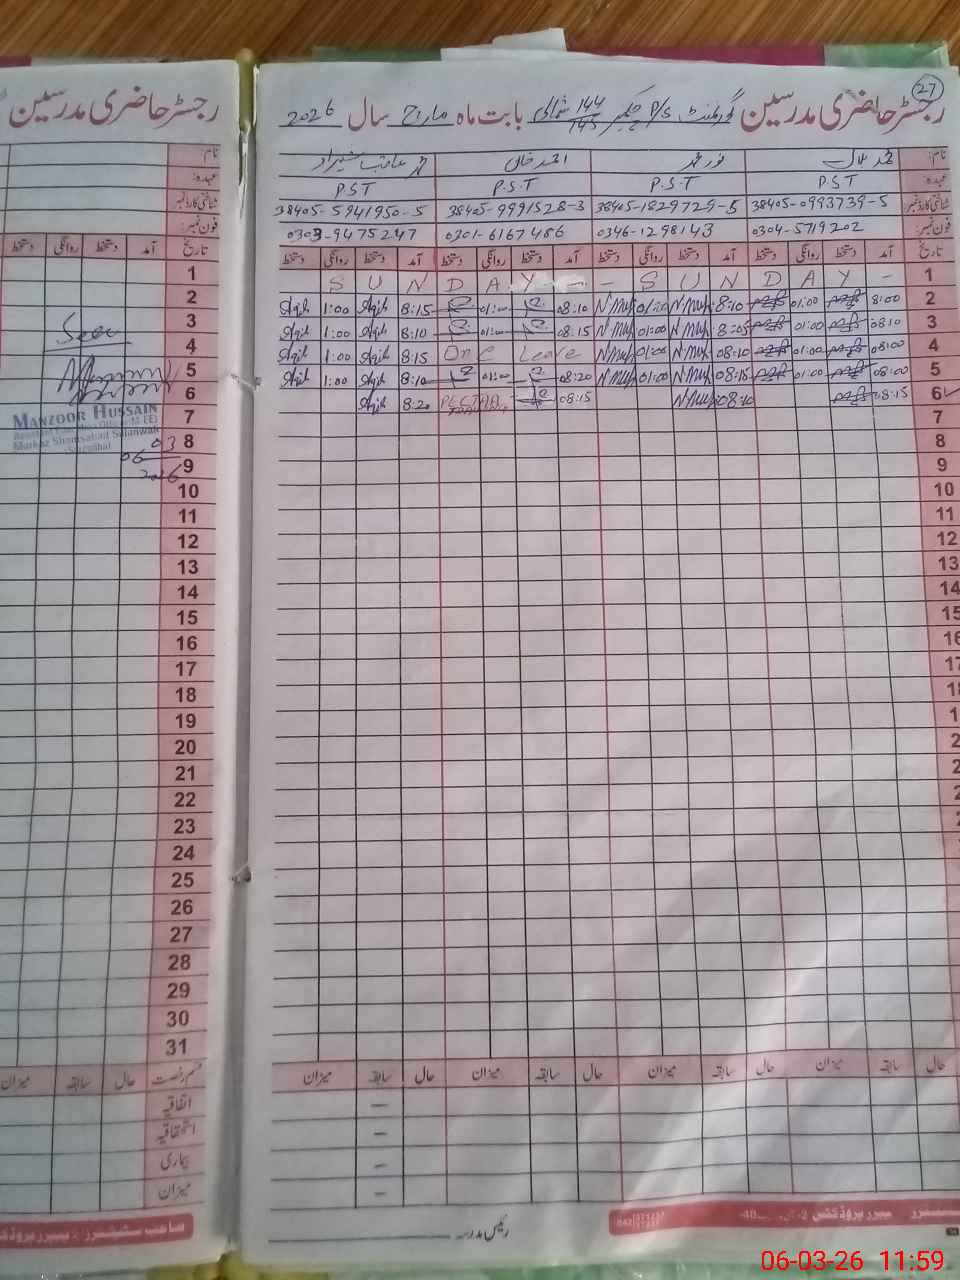 رجسٹر حاضری مدرسین
نام:
عہدہ:
شناختی کارڈ نمبر:
فون نمبر:
تاریخ آمد دستخط روانگی دستخط
1
2
3
4
5
6
7
8
9
10
11
12
13
14
15
16
17
18
19
20
21
22
23
24
25
26
27
28
29
30
31
Seen
MANZOOR HUSSAIN
06 03
2026
قسم رخصت حال سابقہ میزان
اتفاقیہ
استحقاقیہ
بیماری
میزان
27
رجسٹر حاضری مدرسین گورنمنٹ P/S چک نمبر 144/145 شمالی بابت ماہ مارچ سال 2026
نام: محمد بلال نور محمد احمد خان محمد عاقب شہزاد
عہدہ: P.S.T P.S.T P.S.T P.S.T
شناختی کارڈ نمبر: 38405-0993739-5 38405-1829729-5 38405-9991528-3 38405-5941950-5
فون نمبر: 0304-5719202 0346-1298143 0301-6167486 0303-9475247
تاریخ آمد دستخط روانگی دستخط آمد دستخط روانگی دستخط آمد دستخط روانگی دستخط آمد دستخط روانگی دستخط
S U N D A Y - - S U N D A Y - 1
Aqib 1:00 Aqib 8:15 01:00 08:10 01:00 8:10 01:00 8:00 2
Aqib 1:00 Aqib 8:10 01:00 08:15 01:00 8:05 01:00 08:10 3
Aqib 1:00 Aqib 8:15 On C Leave 01:00 08:10 01:00 08:00 4
Aqib 1:00 Aqib 8:10 01:00 08:20 01:00 08:15 01:00 08:00 5
Aqib 8:20 08:15 08:10 08:15 6
7
8
9
10
11
12
13
14
15
16
حال سابقہ میزان حال سابقہ میزان حال سابقہ میزان حال سابقہ میزان
رئیس مدرسہ
06-03-26 11:59